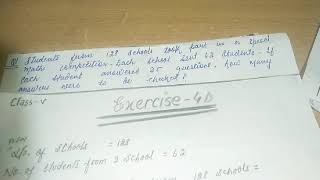 Q1 Students from 128 schools took part in a speed
math competition. Each school sent 62 students. If
each student answered 25 questions, how many
answers need to be checked?
Class-V
Exercise-4D
No. of schools = 128
No. of students from 1 school = 62
students from 128 schools =